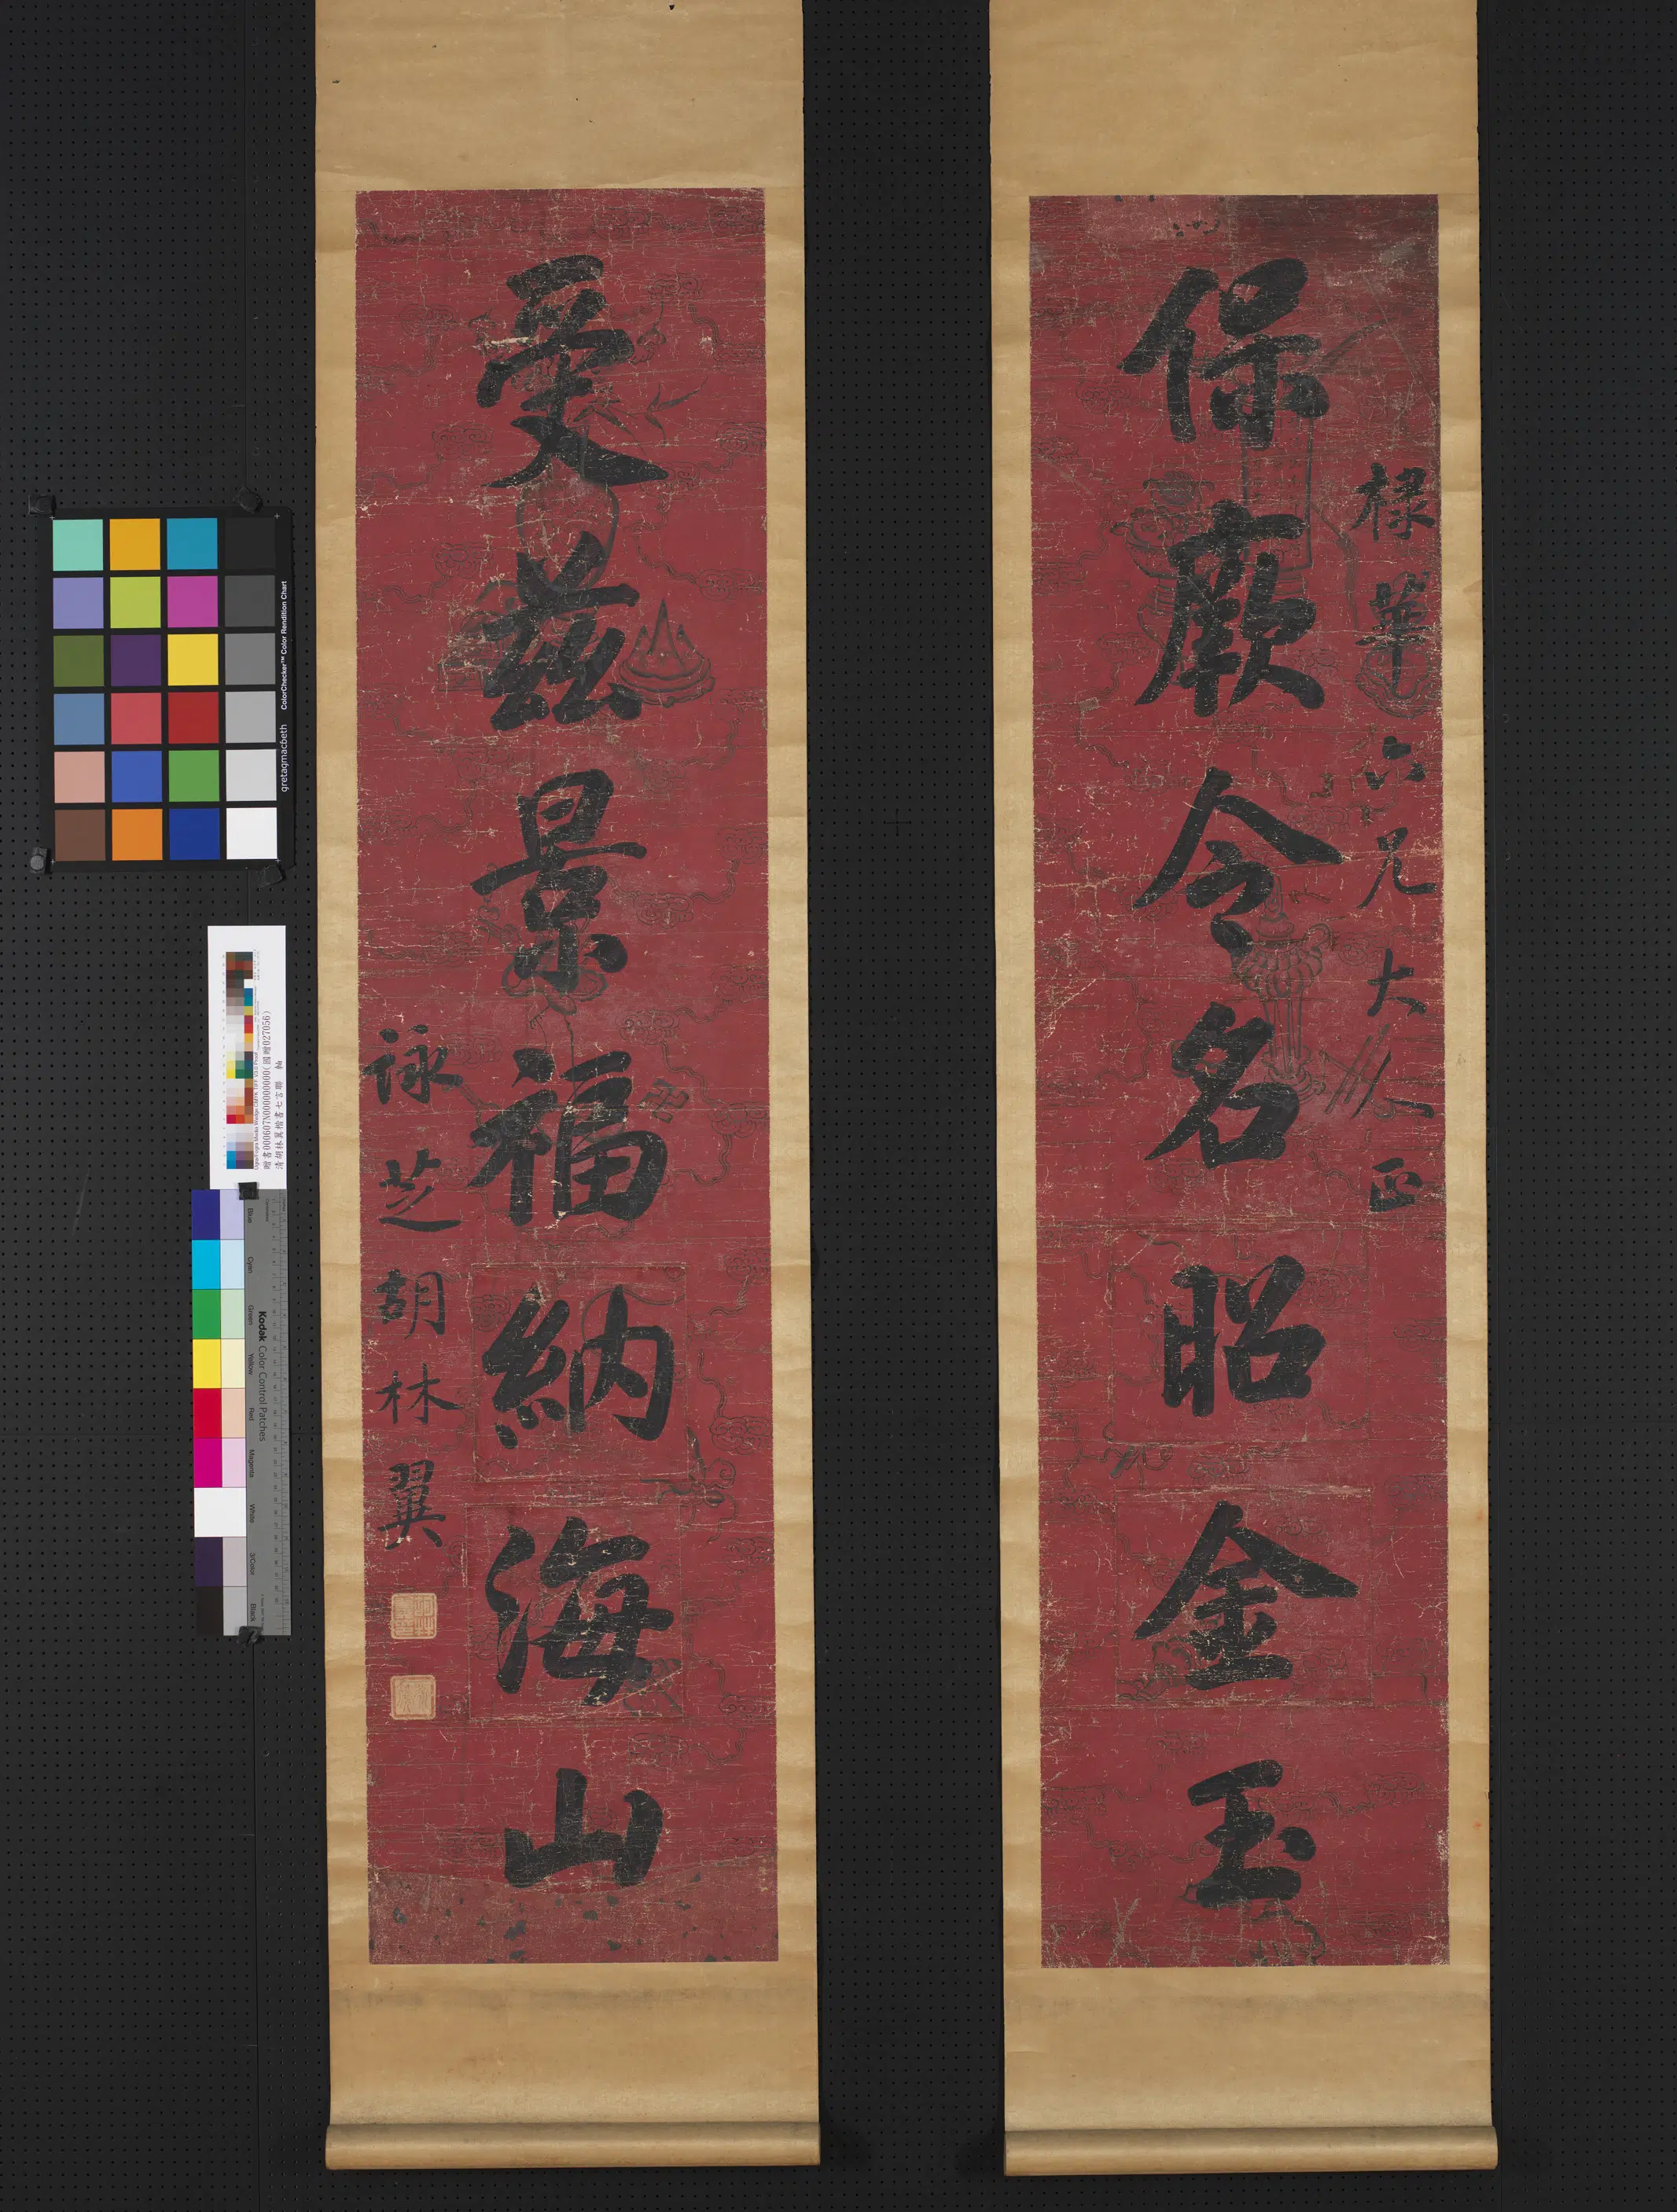 保厥令名昭金玉
祿華六兄大人正
受茲景福納海山
詠芝胡林翼
ColorChecker™ Color Rendition Chart
gretagmacbeth
Kodak Color Control Patches
Blue
Cyan
Green
Yellow
Red
Magenta
White
3/Color
Black